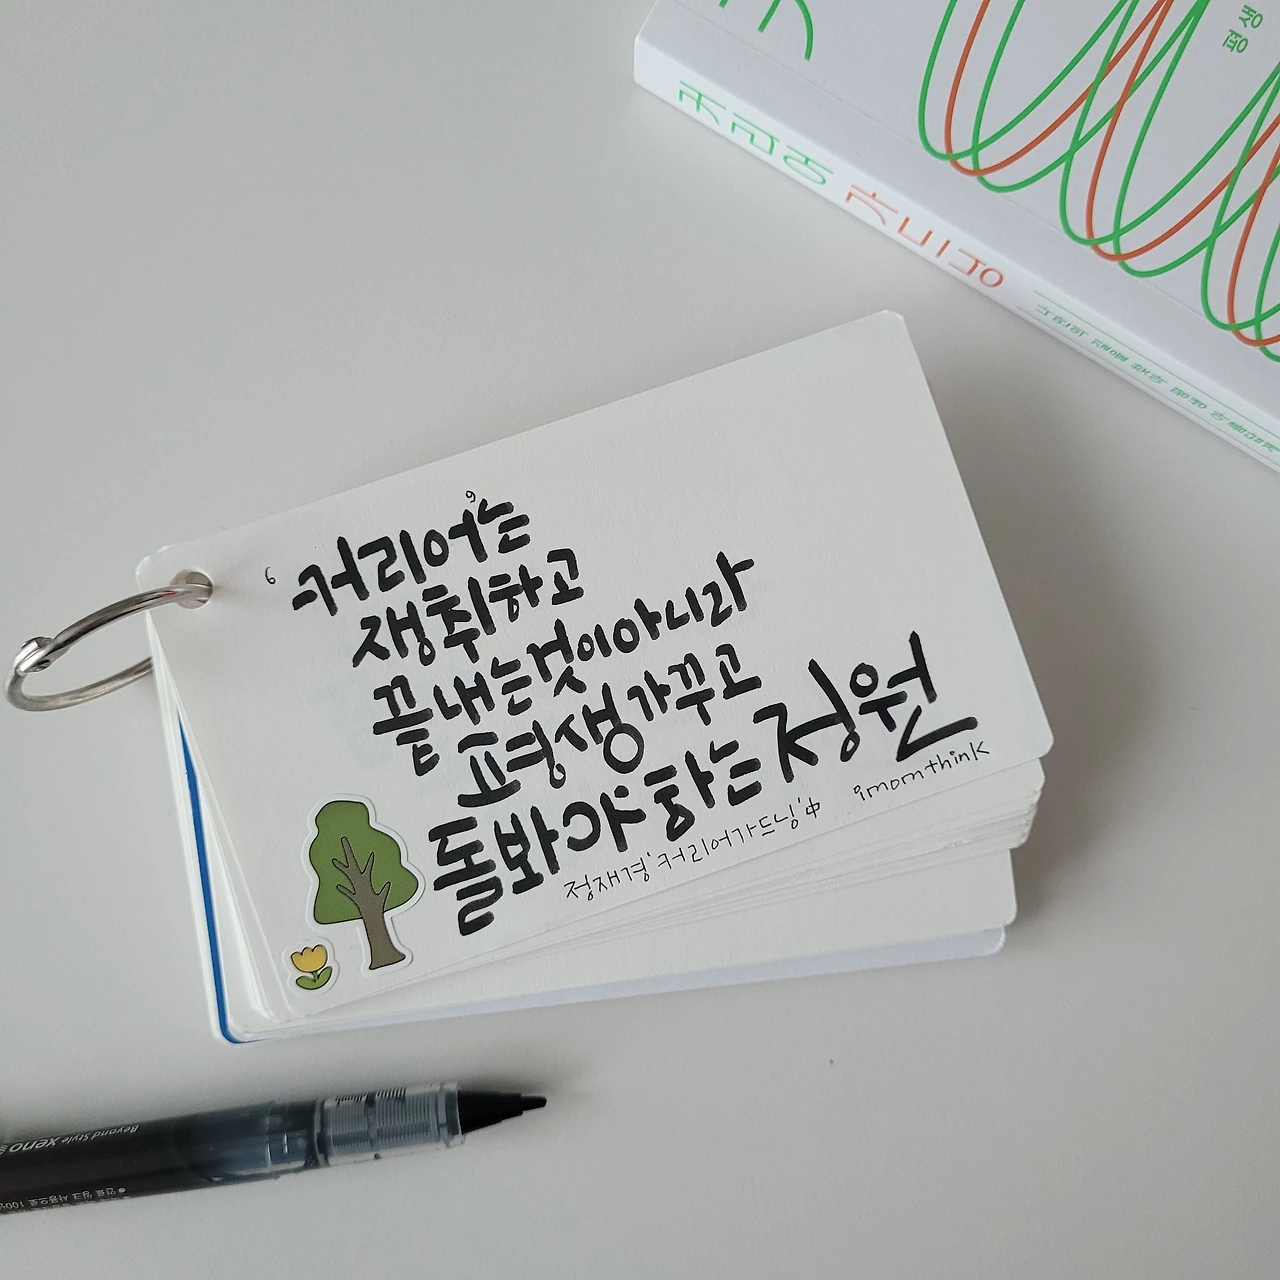 평생
커리어
가드닝
'커리어'는
쟁취하고
끝내는것이아니라
평생가꾸고
돌봐야하는정원
정재경 '커리어가드닝' 中
imomthink
Beyond Style xeno